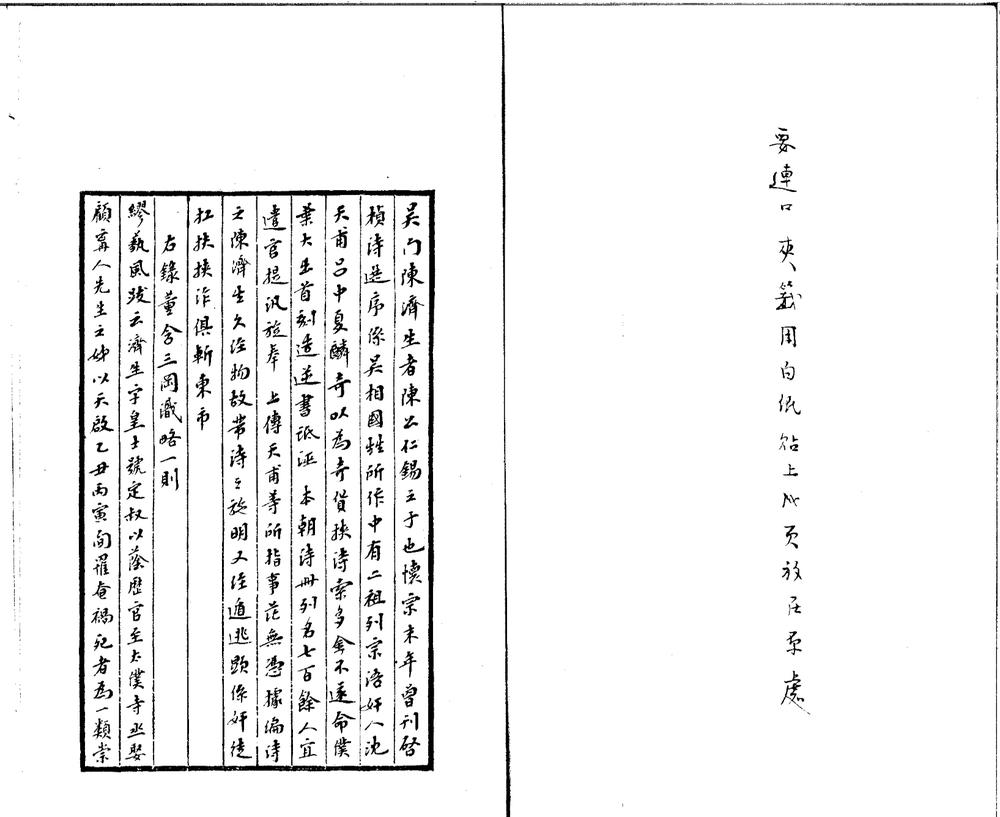 要連口夾籤用白紙貼上成頁放在原處
吳門陳濟生者陳公仁錫之子也懷宗末年曾刊啓
禎詩選序係吳相國甡所作中有二祖列宗語奸人沈
天甫呂中夏麟奇以為奇貨挾詩索多金不遂命僕
葉大生首刻造逆書詆誣 本朝詩冊列名七百餘人宜
遣官提汛旋奉 上傳天甫等所指事茫無憑據編詩
之陳濟生久經物故帶詩之施明又經逋逃顯係奸徒
扛扶挾詐俱斬東市
右錄董含三岡識略一則
繆藝風跋云濟生字皇士號定叔以蔭歷官至太僕寺丞娶
顧寧人先生之姊以天啟乙丑丙寅間罹奄禍死者為一類崇